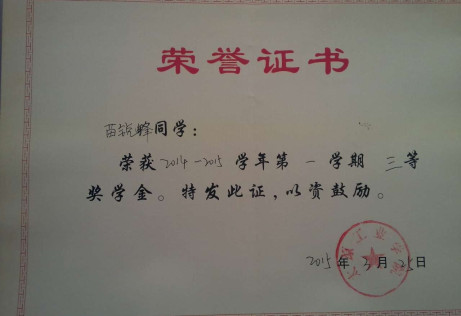 荣誉证书
苗锐峰同学：
荣获2014-2015学年第一学期三等
奖学金。特发此证，以资鼓励。
2015年3月25日
工业学院